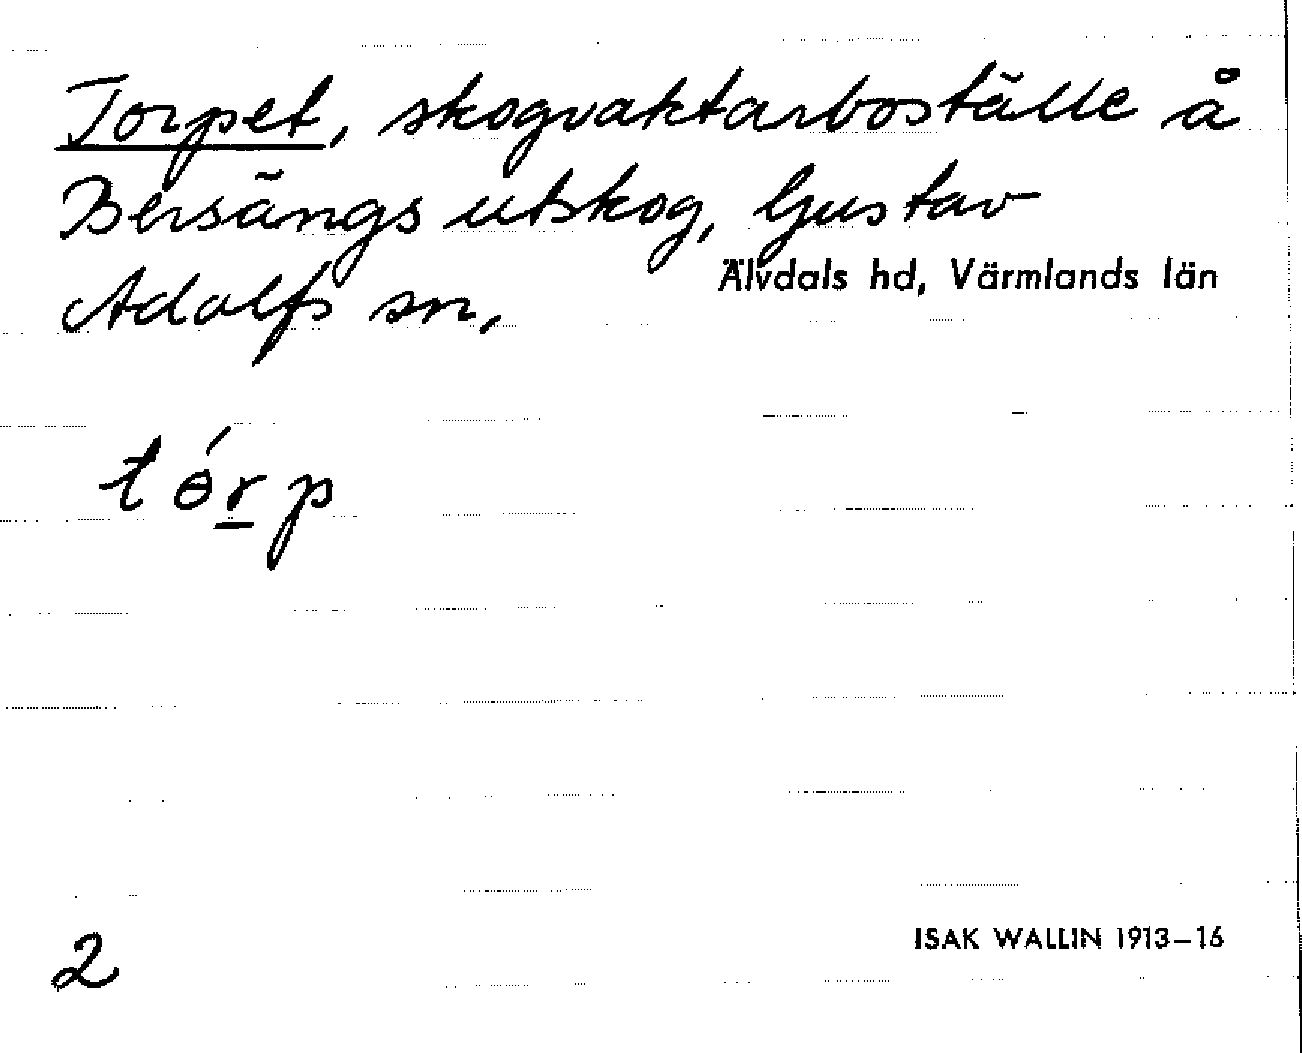 Torpet, skogvaktarboställe å
Bersängs utskog, Gustav
Adolfs sn,
Älvdals hd, Värmlands län
tɵ́r̲p
2
ISAK WALLIN 1913–16